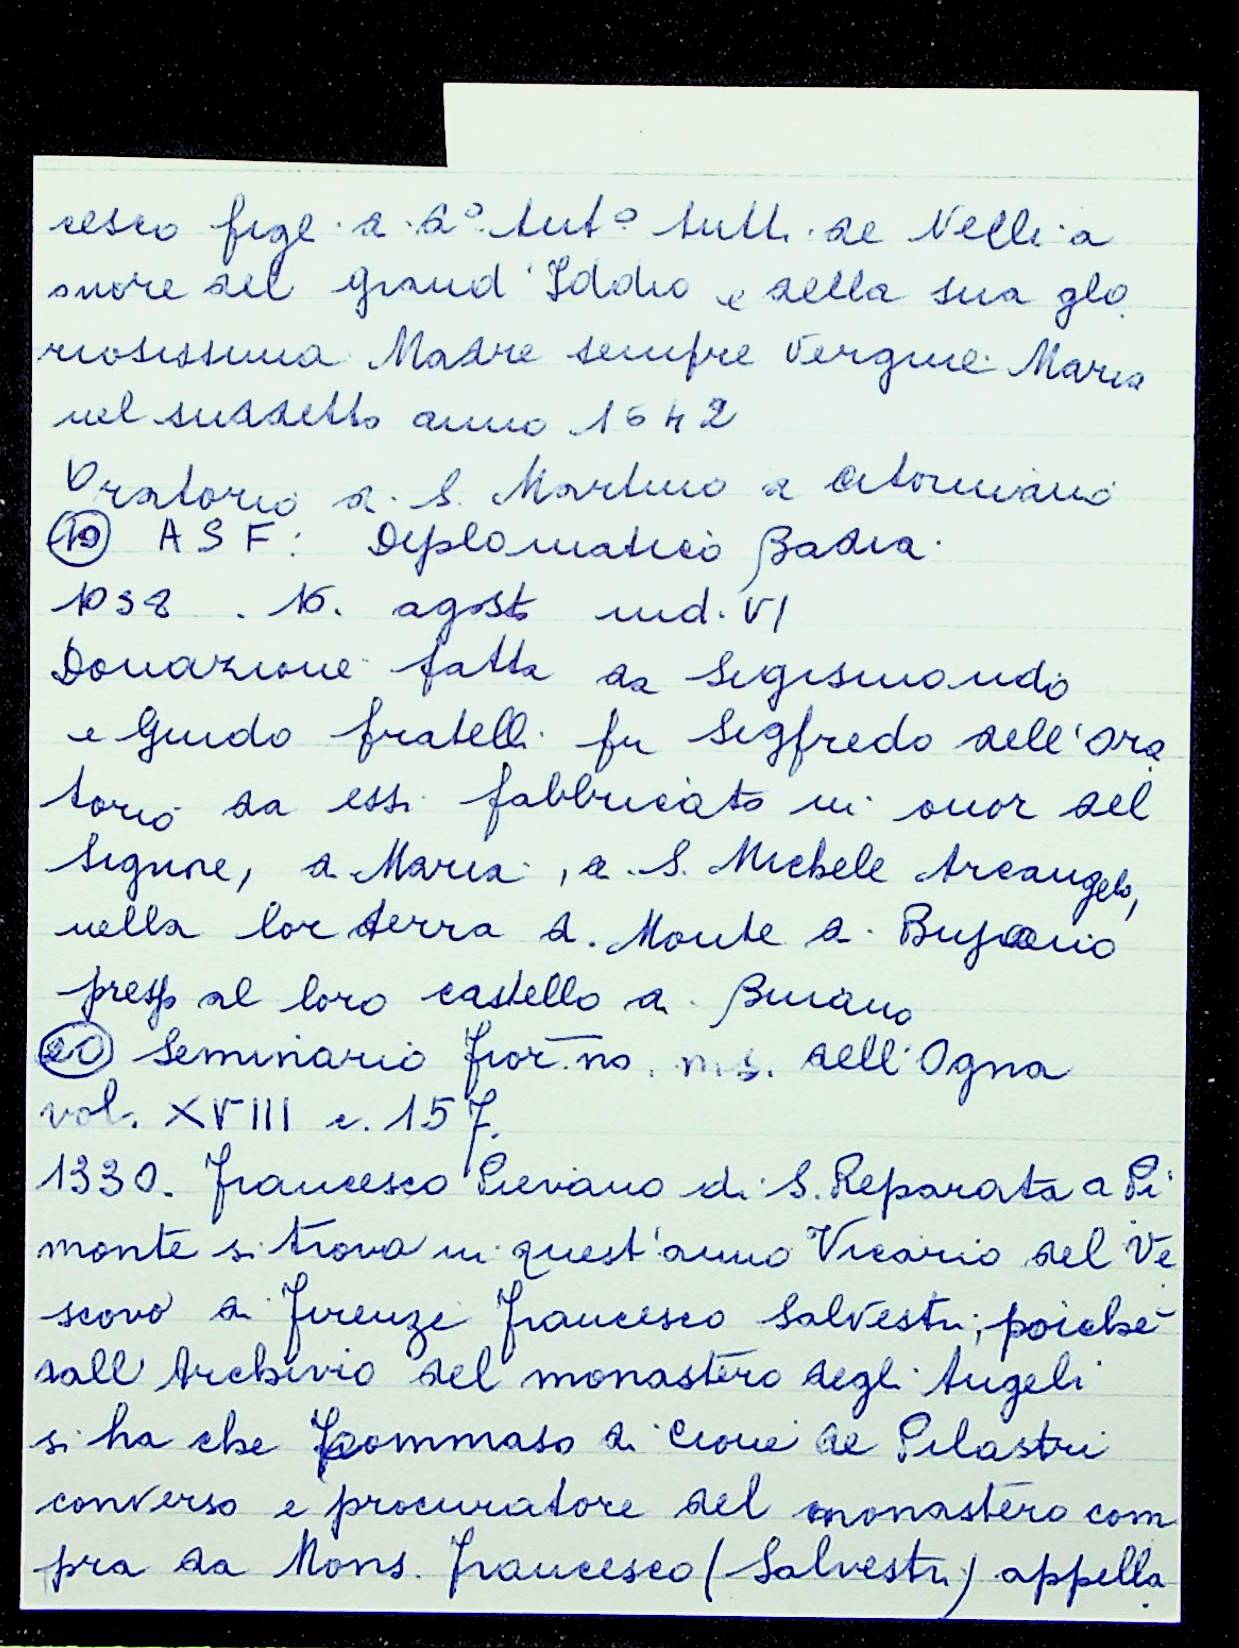 cesco figl. di d.º Ant.º tutti de Nelli a
onore del grand'Iddio e della sua glo
riosissima Madre sempre Vergine Maria
nel suddetto anno 1642
Oratorio di S. Martino a
(10) A S F: Diplomatico Badia
1038. 16. agosto ind. VI
Donazione fatta da Sigismondo
e Guido fratelli fu Sigfredo dell'ora
torio da essi fabbricato in onor del
Signore, di Maria, e S. Michele Arcangelo,
nella lor terra di Monte di
presso al loro castello di Buiano
(20) Seminario Fior.no. ms. dell'Ogna
vol. XVIII c. 157.
1330. Francesco Pievano di S. Reparata a Pi
monte si trova in quest'anno Vicario del Ve
scovo di Firenze Francesco Salvestri; poichè
dall Archivio del monastero degli Angeli
si ha che Tommaso di Cione de Pilastri
converso e procuratore del monastero com
pra da Mons. Francesco (Salvestri) appella